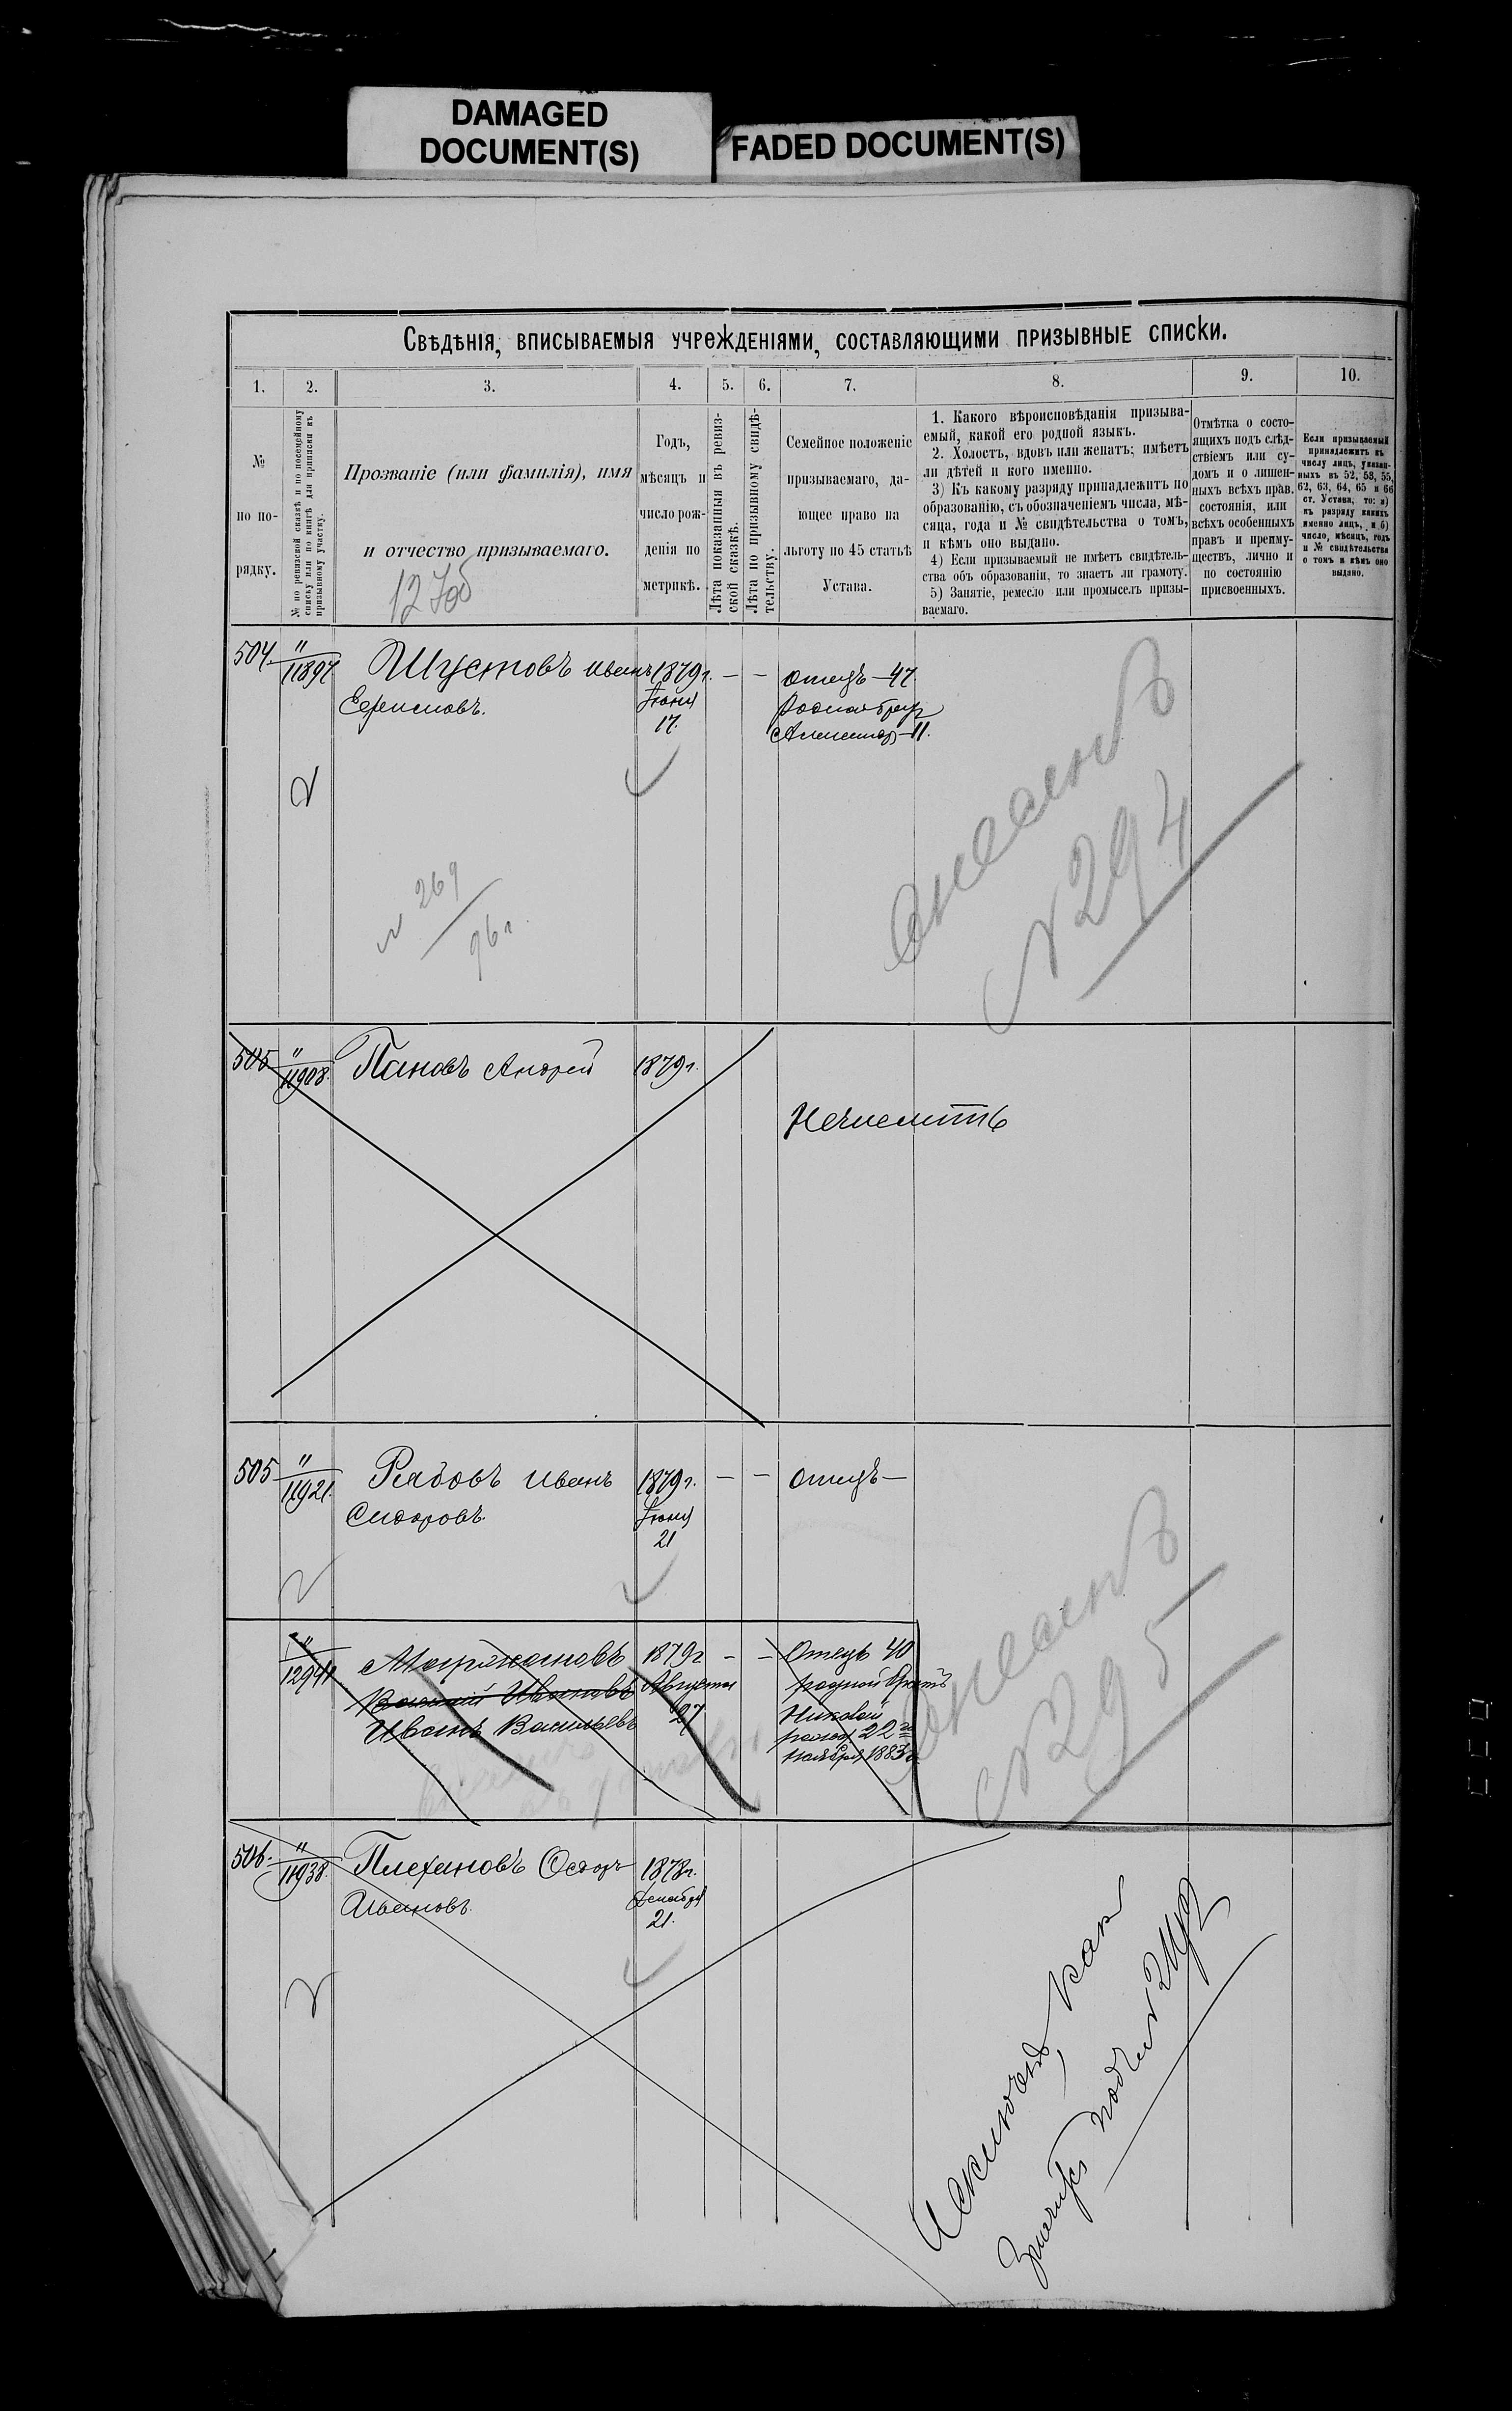 DAMAGED
DOCUMENT(S)
FADED DOCUMENT(S)
Свѣдѣнія, вписываемыя учрежденіями, составляющими призывные списки.
1. 2. 3. 4. 5. 6. 7. 8. 9. 10.
№
по по-
рядку.
№ по ревизской сказкѣ и по посемейному
списку или по книгѣ для приписки къ
призывному участку.
Прозваніе (или фамилія), имя
и отчество призываемаго.
Годъ,
мѣсяцъ и
число рож-
денія по
метрикѣ.
Лѣта показанныя въ ревиз-
ской сказкѣ.
Лѣта по призывному свидѣ-
тельству.
Семейное положеніе
призываемаго, да-
ющее право на
льготу по 45 статьѣ
Устава.
1. Какого вѣроисповѣданія призыва-
емый, какой его родной языкъ.
2. Холостъ, вдовъ или женатъ; имѣетъ
ли дѣтей и кого именно.
3) Къ какому разряду принадлежитъ по
образованію, съ обозначеніемъ числа, мѣ-
сяца, года и № свидѣтельства о томъ,
и кѣмъ оно выдано.
4) Если призываемый не имѣетъ свидѣтель-
ства объ образованіи, то знаетъ ли грамоту.
5) Занятіе, ремесло или промыселъ призы-
ваемаго.
Отмѣтка о состо-
ящихъ подъ слѣд-
ствіемъ или су-
домъ и о лишен-
ныхъ всѣхъ прав.
состоянія, или
всѣхъ особенныхъ
правъ и преиму-
ществъ, лично и
по состоянію
присвоенныхъ.
Если призываемый
принадлежитъ къ
числу лицъ, указан-
ныхъ въ 52, 53, 55,
62, 63, 64, 65 и 66
ст. Устава, то: а)
къ разряду какихъ
именно лицъ, и б)
число, мѣсяцъ, годъ
и № свидѣтельства
о томъ и кѣмъ оно
выдано.
504 " 11897 Шустовъ Иванъ 1879г. — — Отецъ — 47
Іюня
17.
Александръ — 11.
№ 269
96 г.
№ 294
505 " 11908. Пановъ Андрей 1879г.
505 " 11921. Рябовъ Иванъ 1879г. — — Отецъ —
Сидоровъ. Іюня
21
" 1294 1879г — — Отецъ 40
Василій Ивановъ Августа родной братъ
Иванъ Васильевъ 27 Николай
род. 22го
Ноября 1883г.
№ 295
506. " 11938. Плехановъ Ѳедоръ 1878г.
Ивановъ. Декабря
21.
Исключенъ, как
значится подъ №